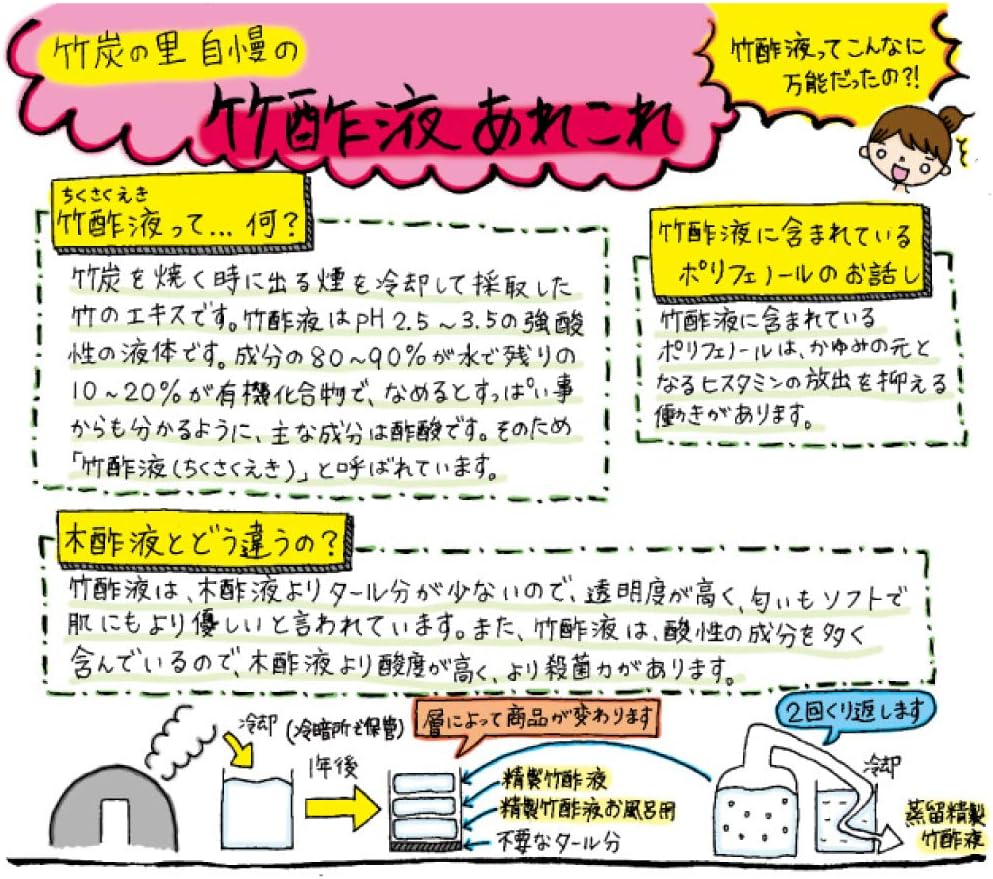 竹炭の里 自慢の
竹酢液 あれこれ
竹酢液ってこんなに
万能だったの?!
ちくさくえき
竹酢液って… 何?
竹炭を焼く時に出る煙を冷却して採取した
竹のエキスです。竹酢液はpH2.5~3.5の強酸
性の液体です。成分の80~90%が水で残りの
10~20%が有機化合物で、なめるとすっぱい事
からも分かるように、主な成分は酢酸です。そのため
「竹酢液(ちくさくえき)」と呼ばれています。
竹酢液に含まれている
ポリフェノールのお話し
竹酢液に含まれている
ポリフェノールは、かゆみの元と
なるヒスタミンの放出を抑える
働きがあります。
木酢液とどう違うの?
竹酢液は、木酢液よりタール分が少ないので、透明度が高く、匂いもソフトで
肌にもより優しいと言われています。また、竹酢液は、酸性の成分を多く
含んでいるので、木酢液より酸度が高く、より殺菌力があります。
冷却
(冷暗所で保管)
1年後
層によって商品が変わります
精製竹酢液
精製竹酢液お風呂用
不要なタール分
2回くり返します
冷却
蒸留精製
竹酢液